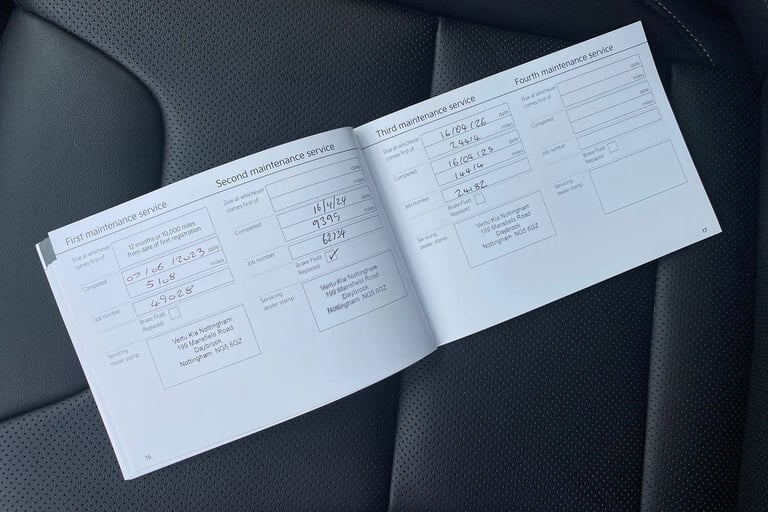 First maintenance service
Due at whichever comes first of:
12 months or 10,000 miles
from date of first registration
Completed
07/06/2023 date
5108 miles
Job number
49028
Brake Fluid
Replaced
Servicing
dealer stamp
Vertu Kia Nottingham
199 Mansfield Road
Daybrook
Nottingham NG5 6GZ
16
Second maintenance service
Due at whichever
comes first of:
date
miles
Completed
16/4/24 date
9395 miles
Job number
62734
Brake Fluid
Replaced ✓
Servicing
dealer stamp
Vertu Kia Nottingham
199 Mansfield Road
Daybrook
Nottingham NG5 6GZ
Third maintenance service
Due at whichever
comes first of:
16/04/26 date
24414 miles
Completed
16/04/25 date
14414 miles
Job number
2482
Brake Fluid
Replaced
Servicing
dealer stamp
Vertu Kia Nottingham
199 Mansfield Road
Daybrook
Nottingham NG5 6GZ
Fourth maintenance service
Due at whichever
comes first of:
date
miles
Completed
date
miles
Job number
Brake Fluid
Replaced
Servicing
dealer stamp
17